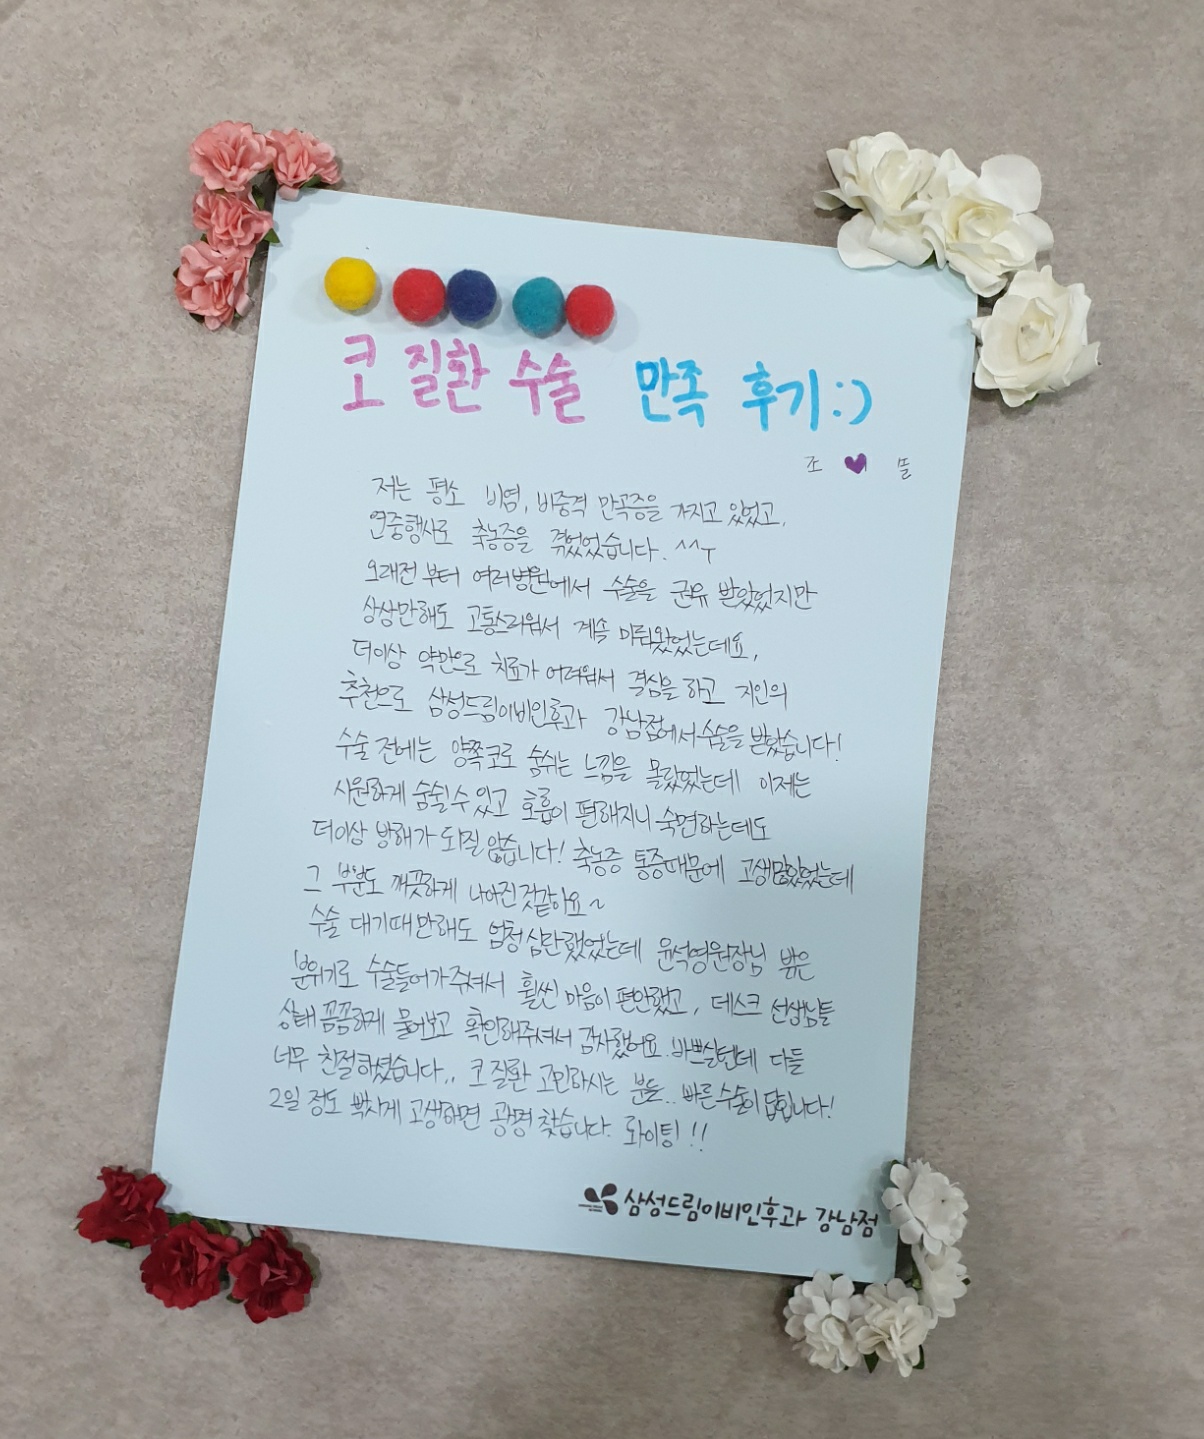 코 질환 수술 만족 후기:)
조 ♥ 뜰
저는 평소 비염, 비중격 만곡증을 가지고 있었고,
연중행사로 축농증을 겪었었습니다. ^^;
오래전부터 여러병원에서 수술을 권유 받았었지만
상상만해도 고통스러워서 계속 미뤄왔었는데요,
더이상 약만으로 치료가 어려워서 결심을 하고 지인의
추천으로 삼성드림이비인후과 강남점에서 수술을 받았습니다!
수술 전에는 양쪽코로 숨쉬는 느낌을 몰랐었는데 이제는
시원하게 숨쉴수 있고 호흡이 편해지니 숙면하는데도
더이상 방해가 되질 않습니다! 축농증 통증때문에 고생많았었는데
그 부분도 깨끗하게 나아진것같아요~
수술 대기때만해도 엄청 심란했었는데 윤석영원장님 밝은
분위기로 수술들어가주셔서 훨씬 마음이 편안했고, 데스크 선생님들
상태 꼼꼼하게 물어보고 확인해주셔서 감사했어요. 바쁘실텐데 다들
너무 친절하셨습니다.. 코 질환 고민하시는 분들.. 빠른수술이 답입니다!
2일 정도 빡시게 고생하면 광명 찾습니다. 화이팅!!
삼성드림이비인후과 강남점